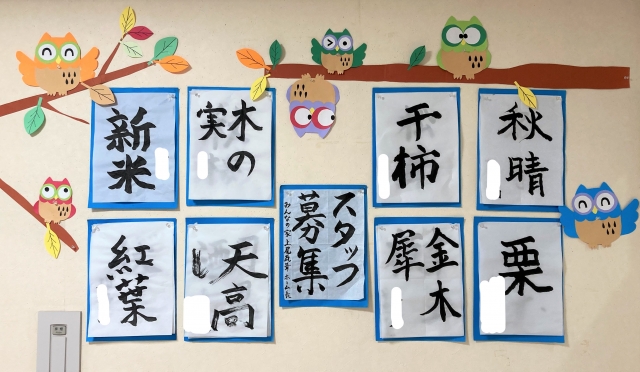 秋晴
干柿
木の
実
新米
栗
金木
犀
スタッフ
募集
みんなの家上尾 ホーム長
天高
し
紅葉